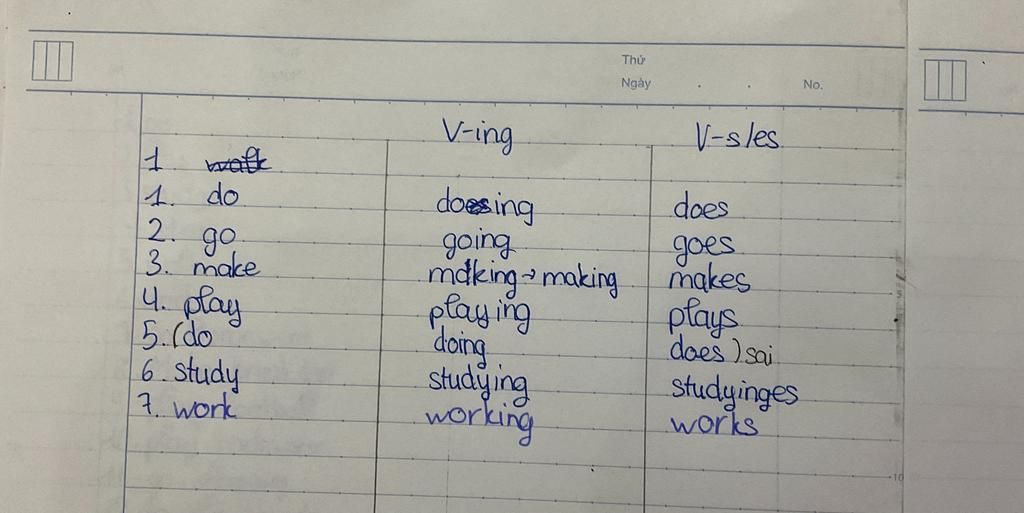 Thứ
Ngày . . No.
V-ing V-s/es
1 walk
1. do doesing does
2. go going goes
3. make mdking → making makes
4. play playing plays
5. (do doing does) sai
6. study studying studyinges
7. work working works
10